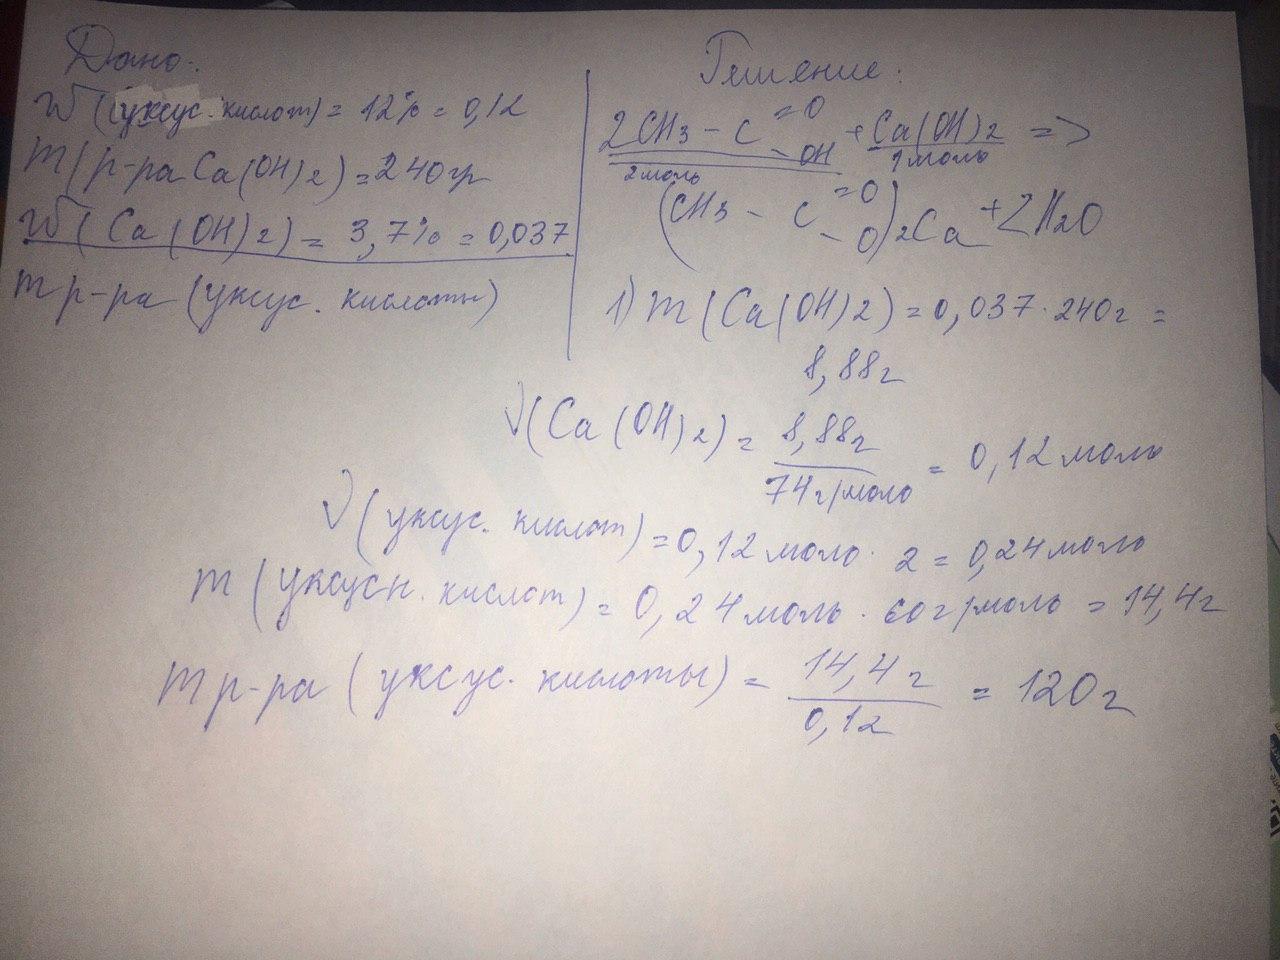 Дано:
W (уксус. кислот) = 12% = 0,12
m (р-ра Ca(OH)2) = 240гр
W (Ca(OH)2) = 3,7% = 0,037
m р-ра (уксус. кислоты)
Решение:
2CH3 - C =O - OH + Ca(OH)2 =>
2моль 1моль
(CH3 - C =O - O)2Ca + 2H2O
1) m (Ca(OH)2) = 0,037 · 240г =
8,88г
ν(Ca(OH)2) = 8,88г / 74г/моль = 0,12моль
ν(уксус. кислот) = 0,12моль · 2 = 0,24моль
m (уксусн. кислот) = 0,24моль · 60г/моль = 14,4г
m р-ра (уксус. кислоты) = 14,4г / 0,12 = 120г